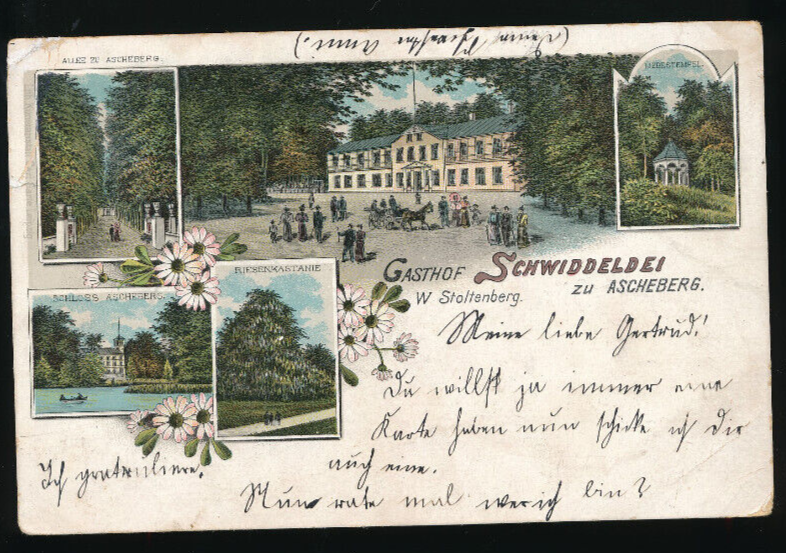 ALLEE ZU ASCHEBERG.
LIEBESTEMPEL.
SCHLOSS ASCHEBERG.
RIESENKASTANIE
GASTHOF SCHWIDDELDEI
W Stoltenberg. ZU ASCHEBERG.
Meine liebe Gertrud!
Du willst ja immer eine
Karte haben nun schicke ich Dir
auch eine.
Ich gratuliere.
Nun rate mal wer ich bin?